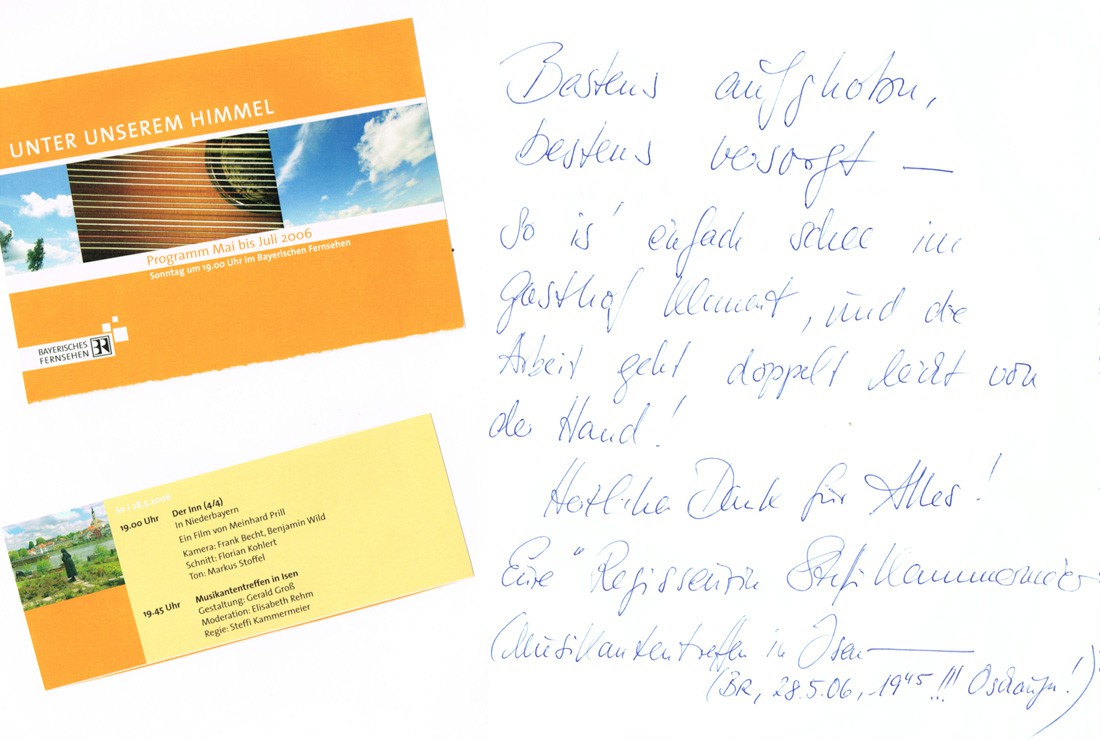 UNTER UNSEREM HIMMEL
Programm Mai bis Juli 2006
Sonntag um 19.00 Uhr im Bayerischen Fernsehen
BAYERISCHES
FERNSEHEN
So | 28.5.2006
19.00 Uhr Der Inn (4/4)
In Niederbayern
Ein Film von Meinhard Prill
Kamera: Frank Becht, Benjamin Wild
Schnitt: Florian Kohlert
Ton: Markus Stoffel
19.45 Uhr Musikantentreffen in Isen
Gestaltung: Gerald Groß
Moderation: Elisabeth Rehm
Regie: Steffi Kammermeier
Bestens aufghobn,
bestens versorgt —
So is' einfach schee im
Gasthof Klement, und die
Arbeit geht doppelt leicht von
der Hand!
Herzlichen Dank für Alles!
Eure "Regisseurin Steffi Kammermeier
(Musikantentreffen in Isen —
(BR, 28.5.06, 19⁴⁵ !!! Oschaugn!)